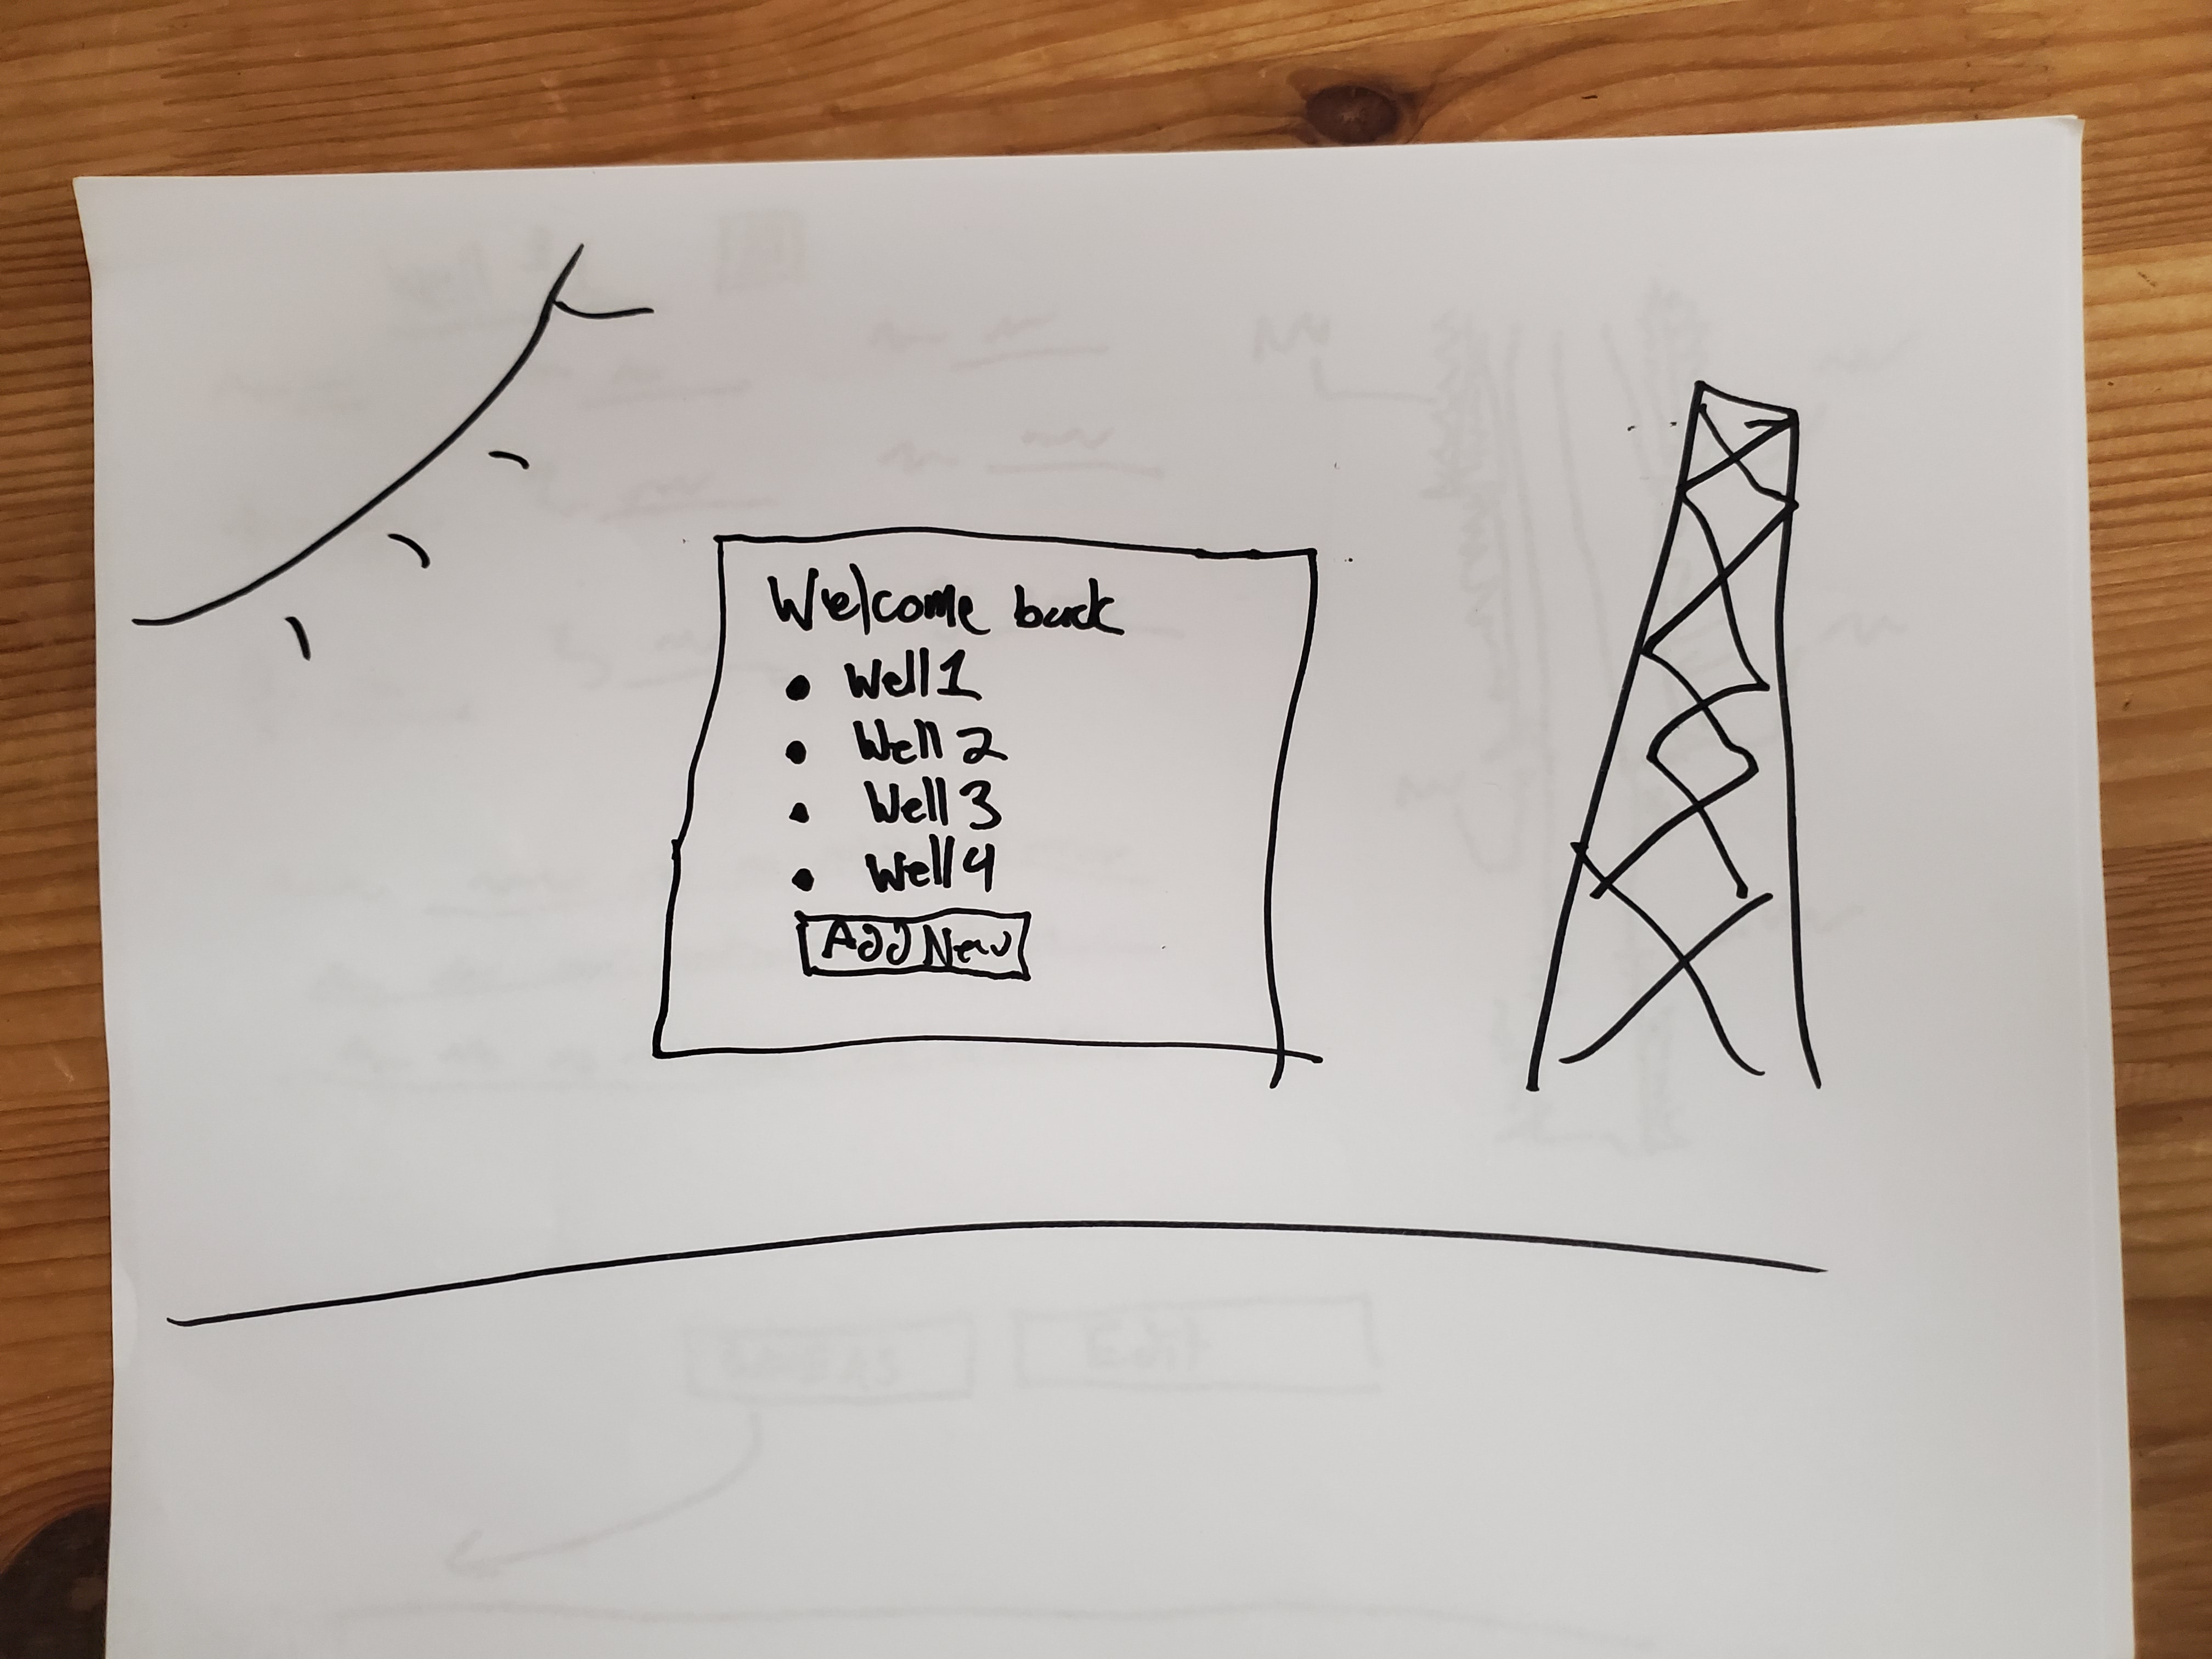 Welcome back
• Well 1
• Well 2
• Well 3
• Well 4
Add New